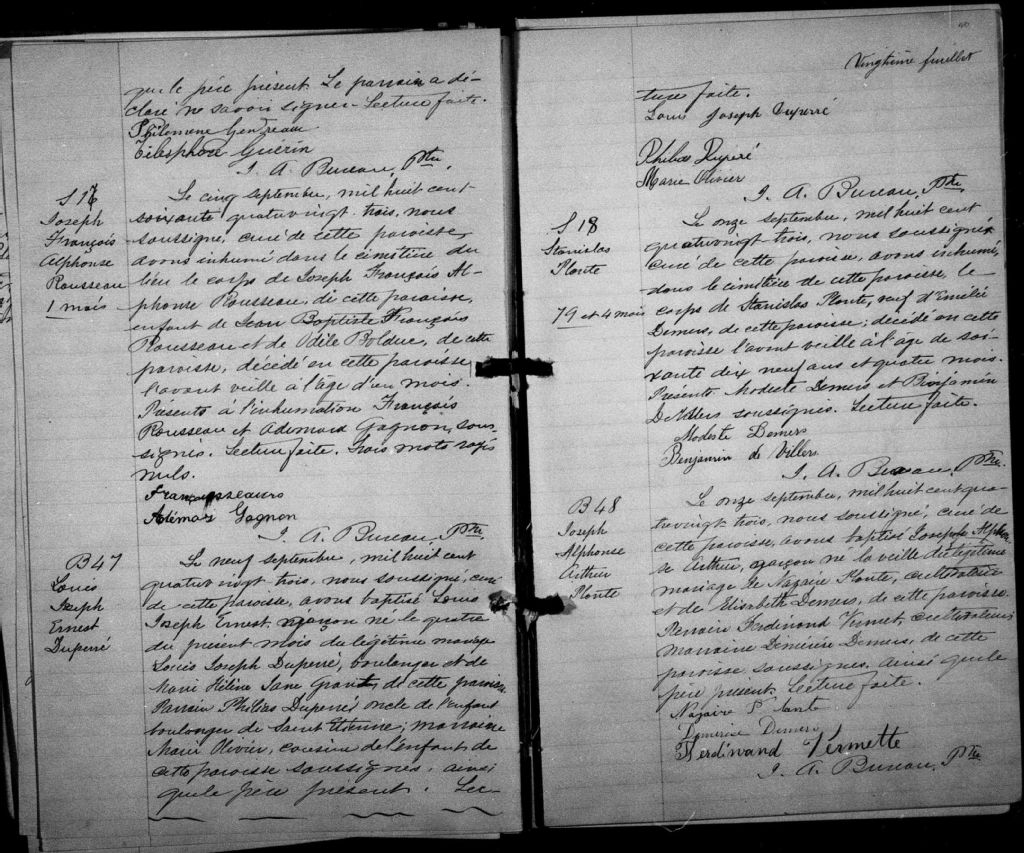 que le père présent. Le parrain a dé-
claré ne savoir signer. Lecture faite.
Philomene Gendreau
Télesphore Guérin
J. A. Bureau, Ptre
S 17
Joseph
François
Alphonse
Rousseau
1 mois
Le cinq septembre, mil huit cent
soixante quatrevingt trois, nous
soussigné, curé de cette paroisse,
avons inhumé dans le cimetière du
lieu le corps de Joseph François Al-
phonse Rousseau, de cette paroisse,
enfant de Jean Baptiste François
Rousseau et de Odèle Bolduc, de cette
paroisse, décédé en cette paroisse
l'avant veille à l'âge d'un mois.
Présents à l'inhumation François
Rousseau et Adémard Gagnon, sous-
signés. Lecture faite. Trois mots rayés
nuls.
Adémar Gagnon
J. A. Bureau, Ptre
B 47
Louis
Joseph
Ernest
Duperré
Le neuf septembre, mil huit cent
quatrevingt trois, nous soussigné, curé
de cette paroisse, avons baptisé Louis
Joseph Ernest, garçon né le quatre
du présent mois du légitime mariage
Louis Joseph Duperré, boulanger et de
Marie Hélène Jane Grant, de cette paroisse.
Parrain Philias Duperré oncle de l'enfant
boulanger de Saint Etienne; marraine
Marie Olivier, cousine de l'enfant, de
cette paroisse soussignés, ainsi
que le père présent. Lec-
Vingtième feuillet
ture faite.
Louis Joseph Duperré
Philias Duperé
Marie Olivier
J. A. Bureau, Ptre
S 18
Stanislas
Plante
79 et 4 mois
Le onze septembre, mil huit cent
quatrevingt trois, nous soussigné
curé de cette paroisse, avons inhumé,
dans le cimetière de cette paroisse, le
corps de Stanislas Plante, veuf d'Emélie
Demers, de cette paroisse; décédé en cette
paroisse l'avant veille à l'age de soi-
xante dix neuf ans et quatre mois.
Présents Modeste Demers et Benjamin
DeVillers soussignés. Lecture faite.
Modeste Demers
Benjamin de Villers
J. A. Bureau, Ptre
B 48
Joseph
Alphonse
Arthur
Plante
Le onze septembre, mil huit cent qua-
trevingt trois, nous soussigné, curé de
cette paroisse, avons baptisé Joseph Alphon-
se Arthur, garçon né la veille du légitime
mariage de Nazaire Plante, cultivateur
et de Elisabeth Demers, de cette paroisse.
Parrain Ferdinand Vermet, cultivateur;
marraine Démérise Demers, de cette
paroisse, soussignés, ainsi que le
père présent. Lecture faite.
Nazaire Plante
Démérise Demers
Ferdinand Vermette
J. A. Bureau, Ptre